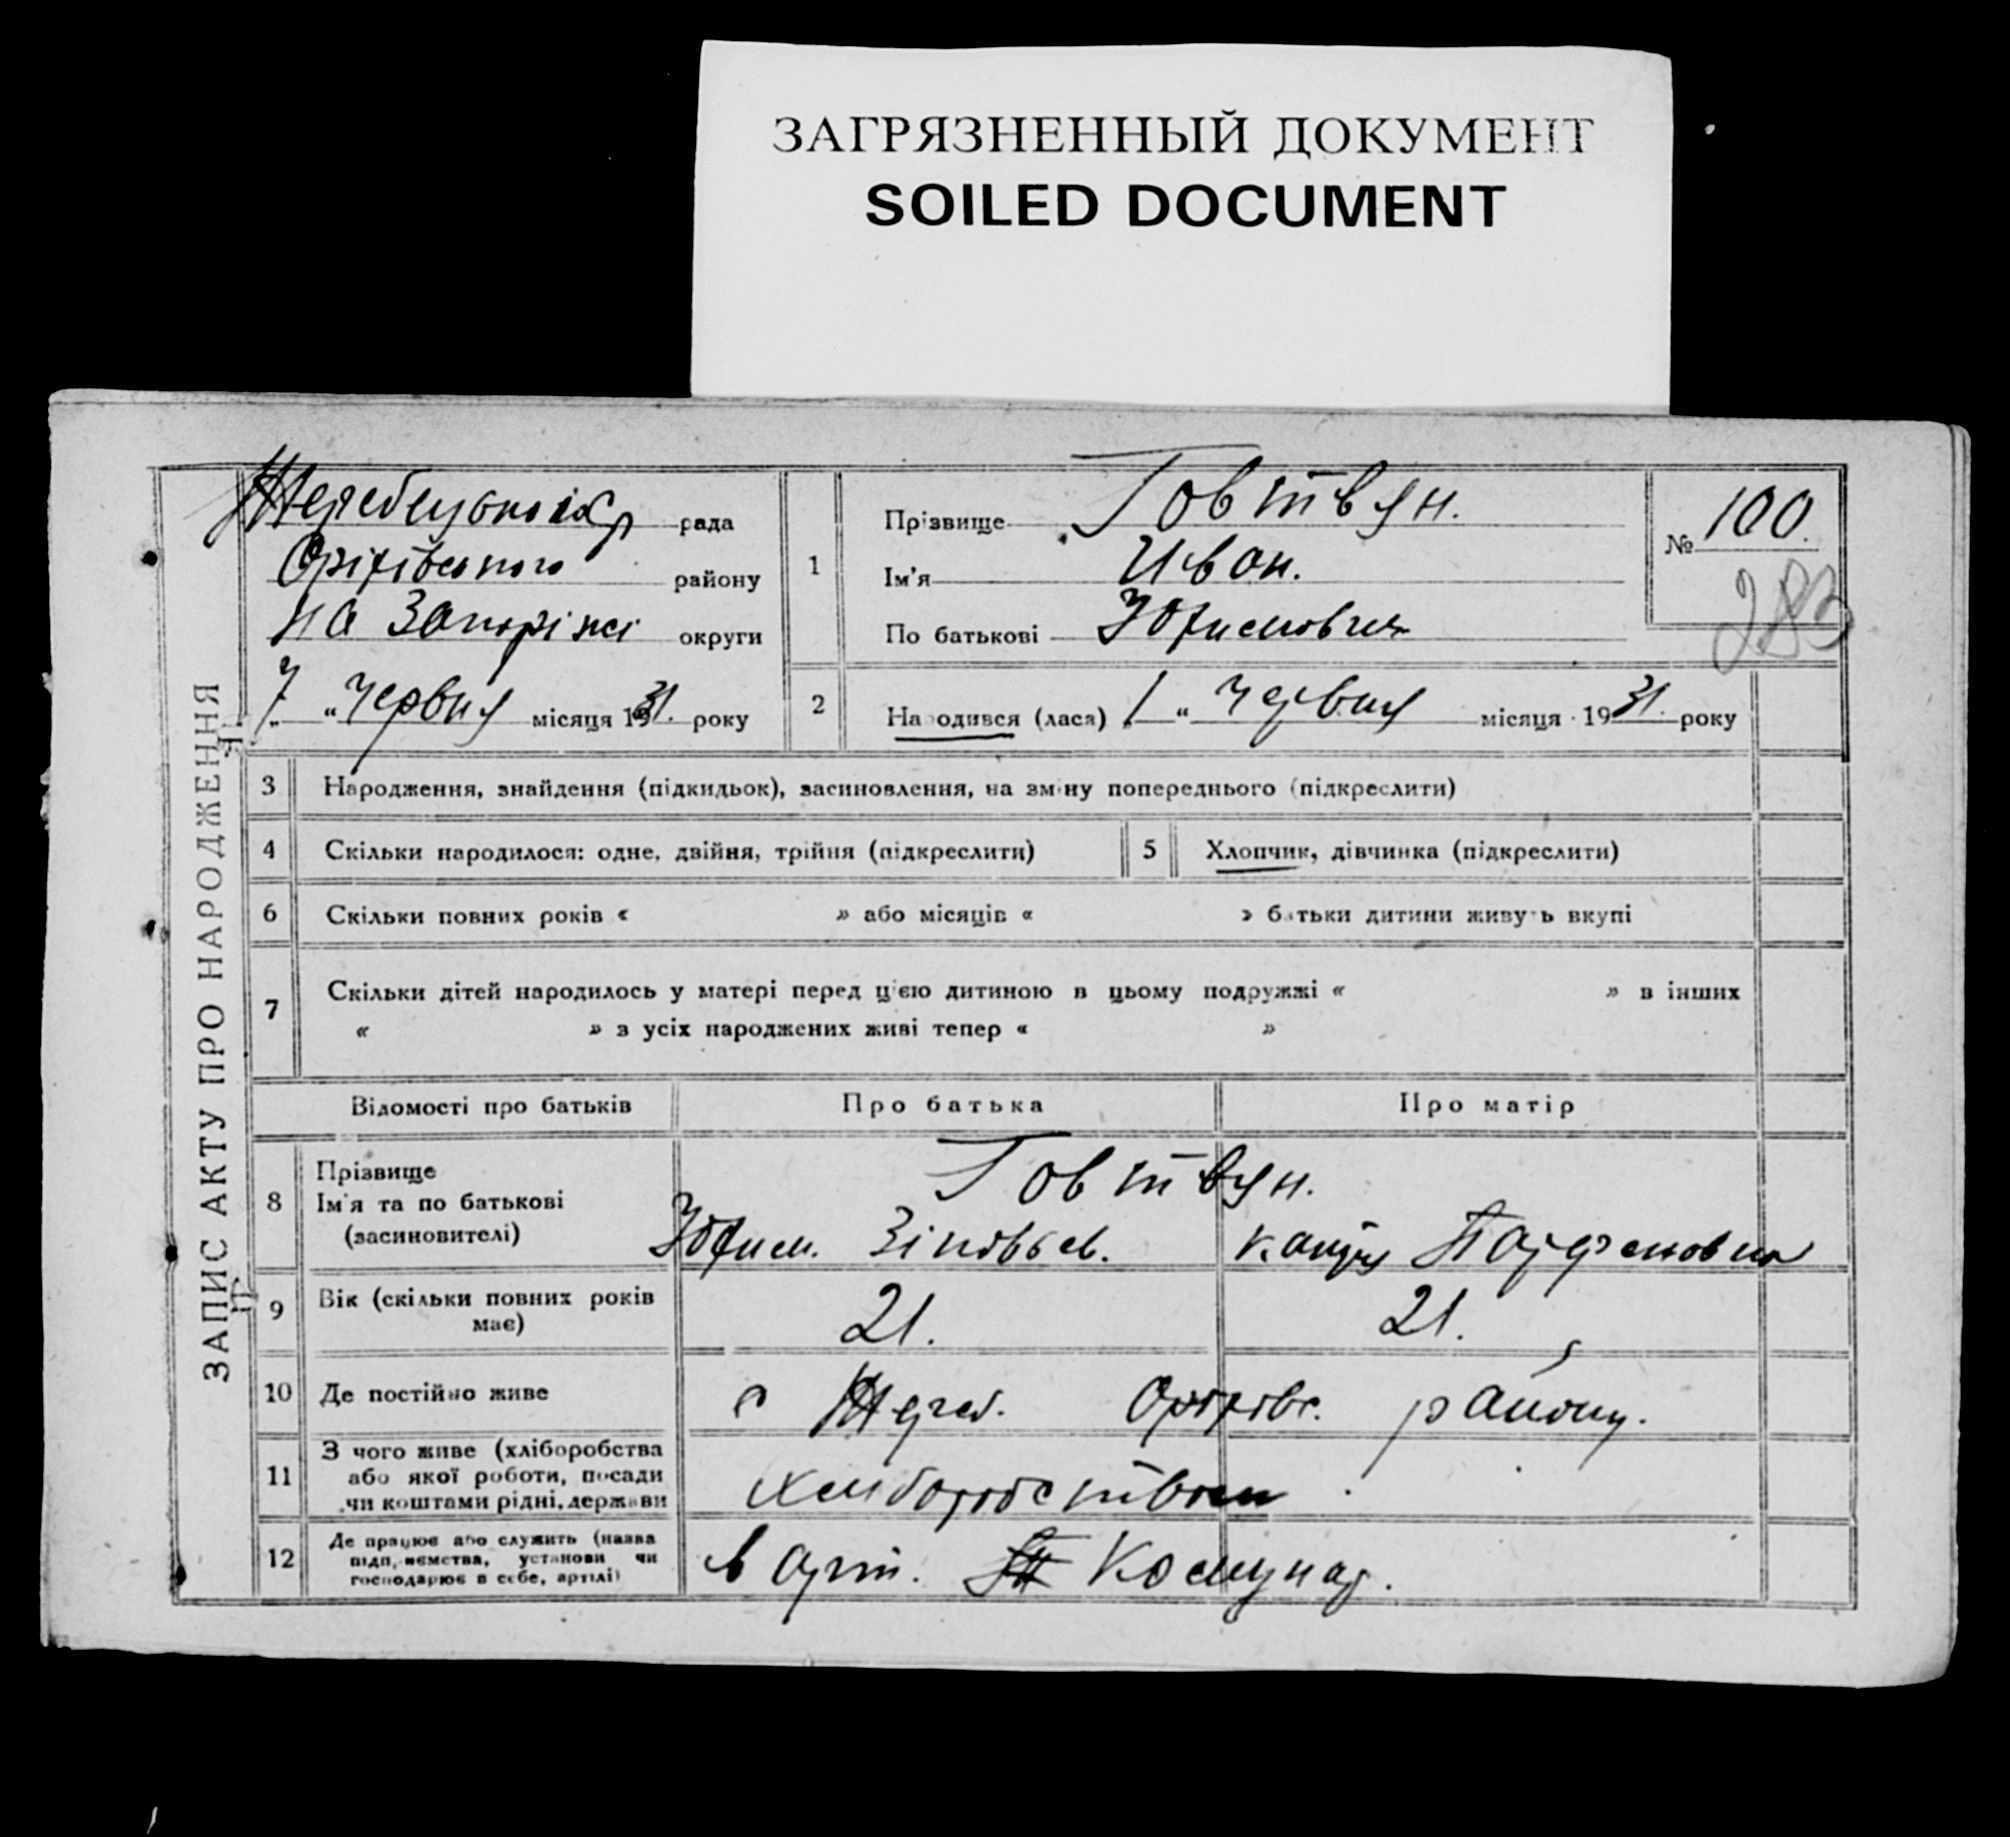 ЗАГРЯЗНЕННЫЙ ДОКУМЕНТ
SOILED DOCUMENT
ЗАПИС АКТУ ПРО НАРОДЖЕННЯ
рада
Оріхівського району
на Запоріжі округи
„ 7 “ Червня місяця 1931. року
1
Прізвище Товтвян.
Ім'я Иван.
По батькові Юхимович
№ 100.
283
2
Народився (лася) „ 1 “ Червня місяця 1931. року
3 Народження, знайдення (підкидьок), засиновлення, на зміну попереднього (підкреслити)
4 Скільки народилося: одне, двійня, трійня (підкреслити) 5 Хлопчик, дівчинка (підкреслити)
6 Скільки повних років « » або місяців « » батьки дитини живуть вкупі
7 Скільки дітей народилось у матері перед цією дитиною в цьому подружжі « » в інших
« » з усіх народжених живі тепер « »
Відомості про батьків Про батька Про матір
8 Прізвище
Ім'я та по батькові
(засиновителі)
Товтвян.
Юхим. Зіновьев. Парфеновна
9 Вік (скільки повних років
має)
21. 21.
10 Де постійно живе
с Жереб. Оріхівс. району.
11 З чого живе (хліборобства
або якої роботи, посади
чи коштами рідні, держави
хлиборобством
12 Де працює або служить (назва
підприємства, установи чи
господарює в себе, артілі)
в арт. Комунар.